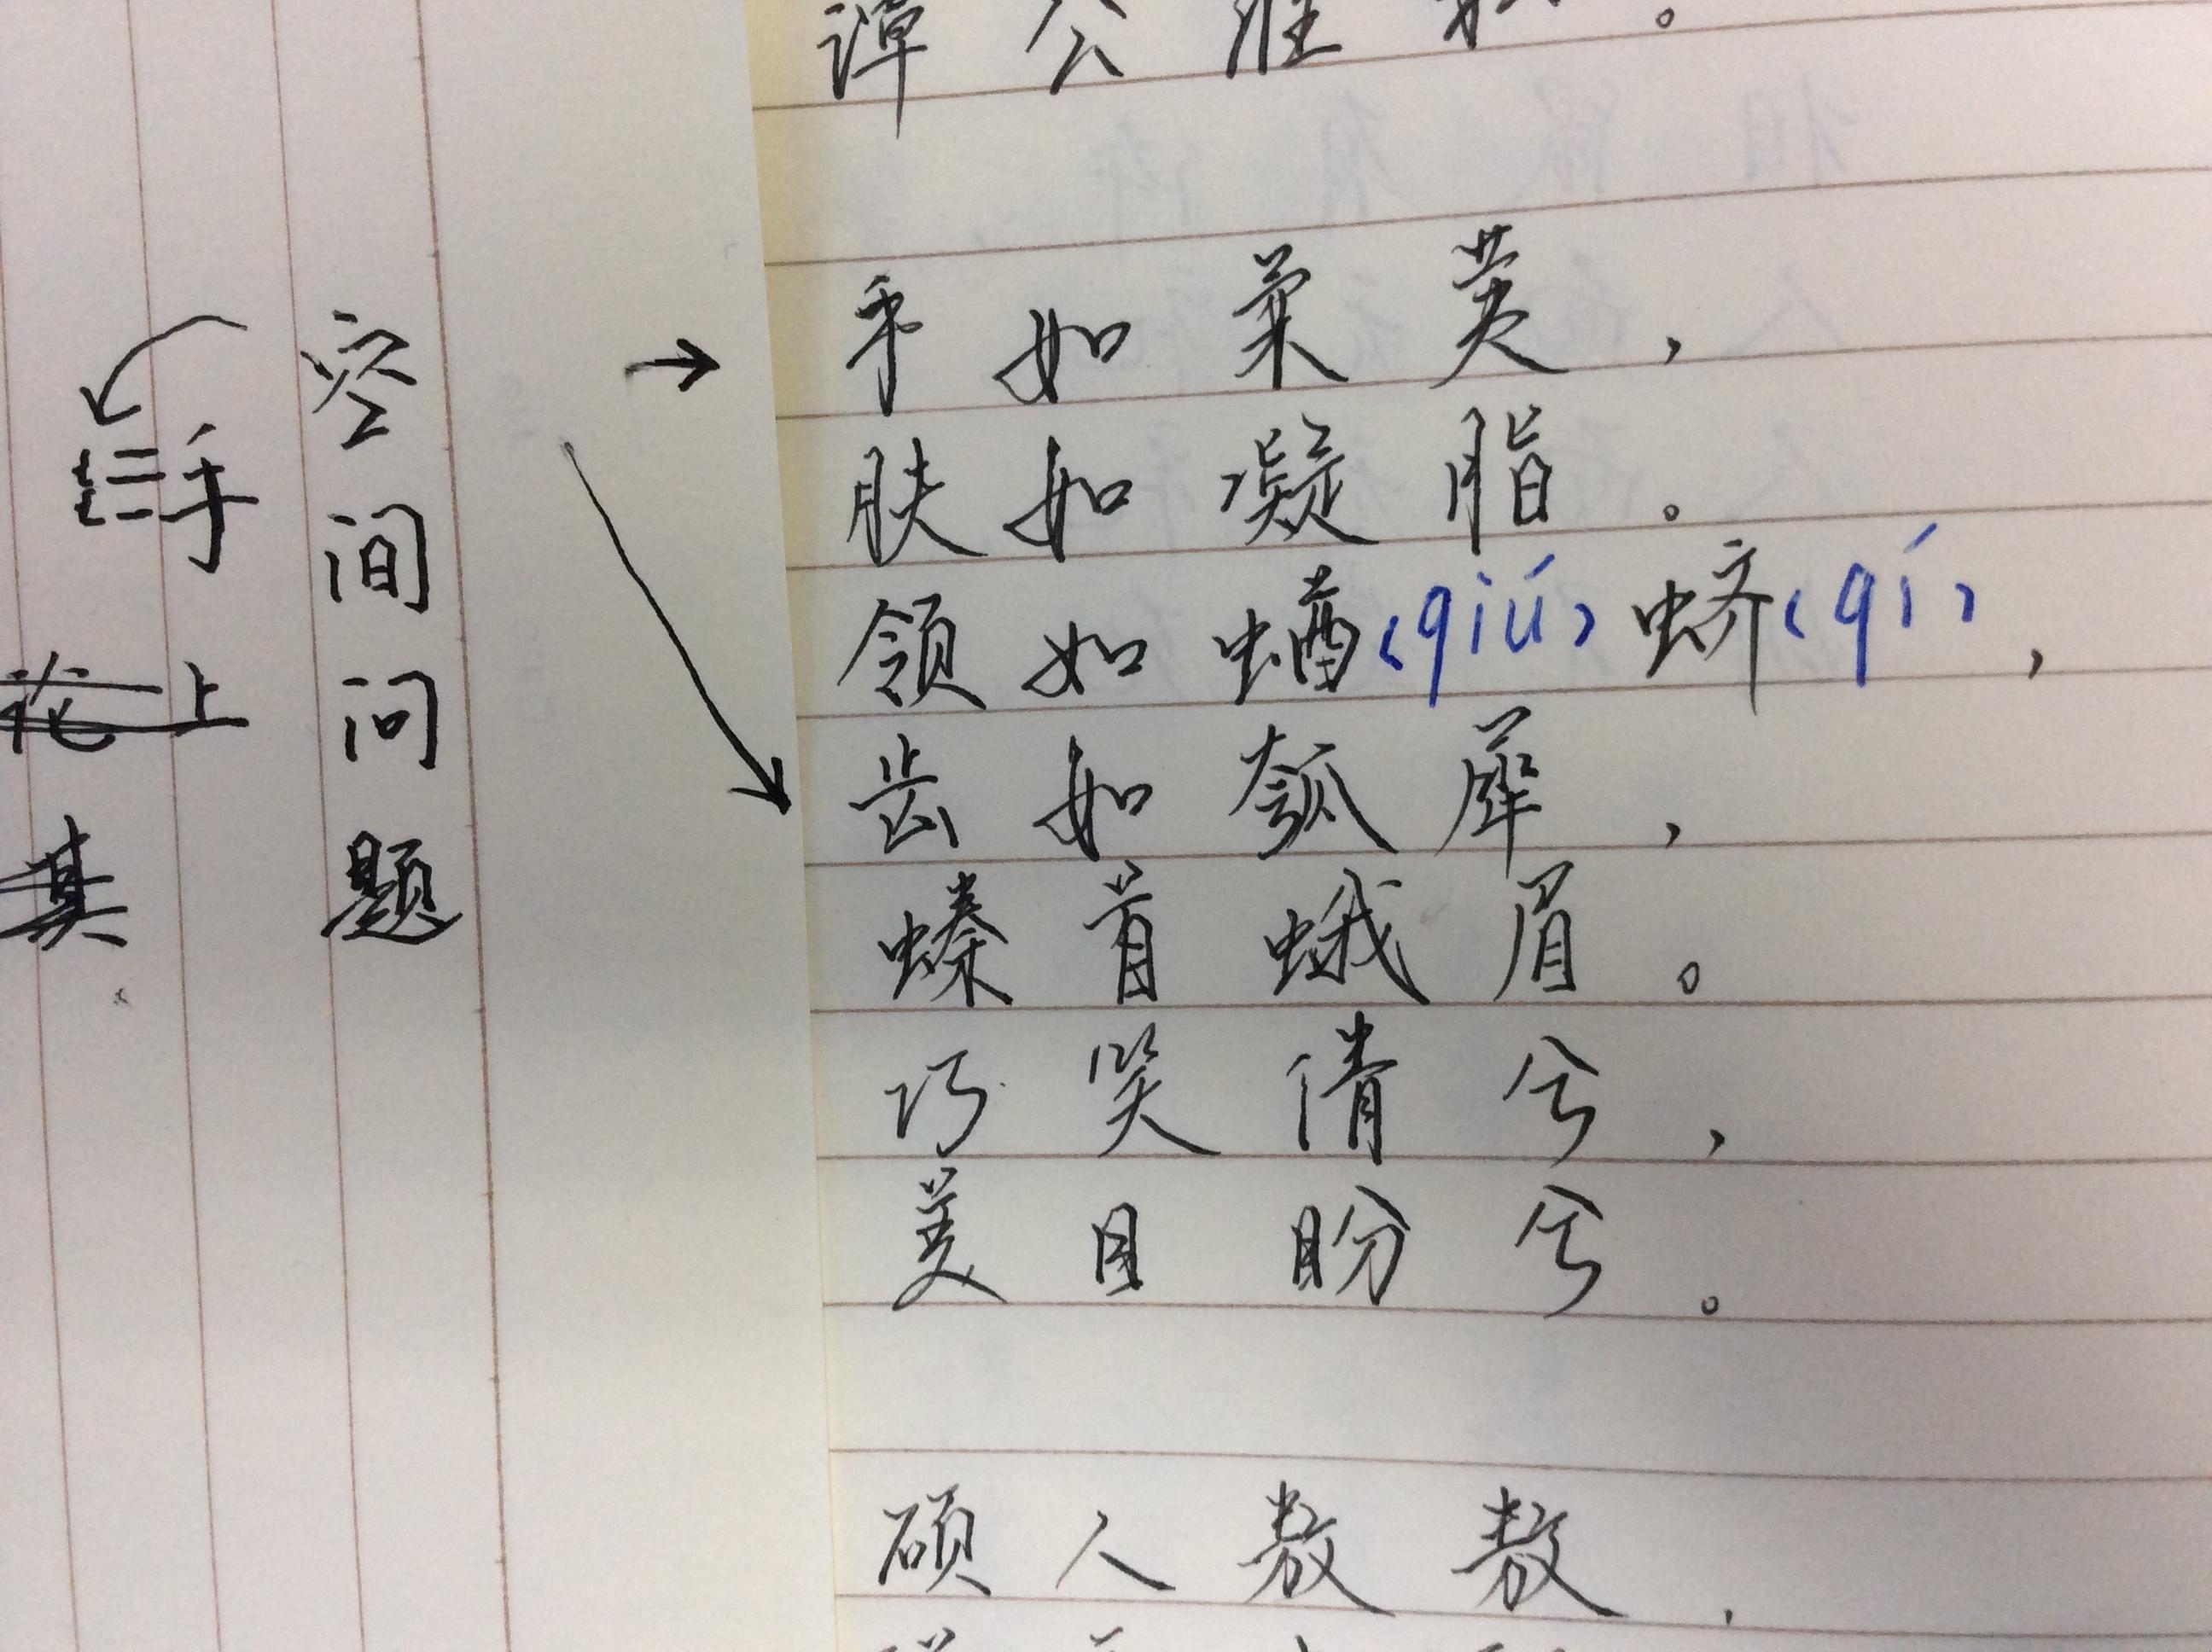 谭公维私。
手如荑荑，
肤如凝脂。
领如蝤(qiú)蛴(qí)，
齿如瓠犀，
螓首蛾眉。
巧笑倩兮，
美目盼兮。
硕人敖敖，
空间问题
手上
其